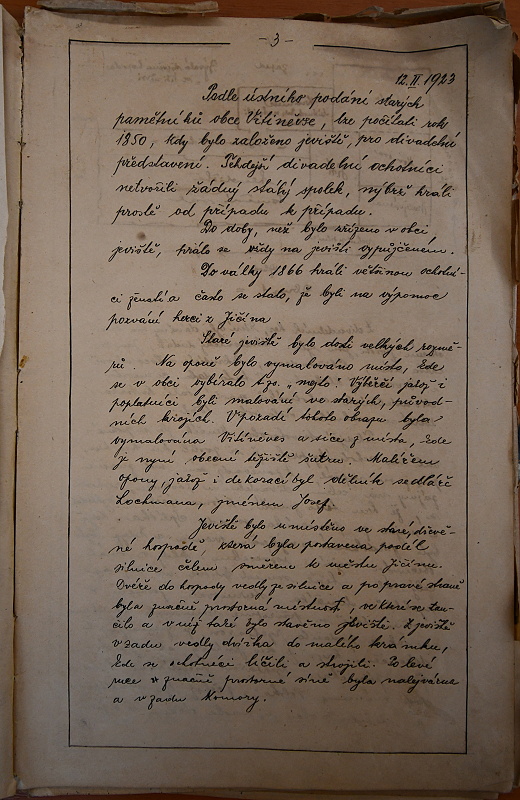 - 3 -
12. II. 1923
Podle ústního podání starých
pamětníků obce Vitiněvse, lze počítati rok
1850, kdy bylo založeno jeviště, pro divadelní
představení. Tehdejší divadelní ochotníci
netvořili žádný stálý spolek, nýbrž hráli
prostě od případu k případu.
Do doby, než bylo zřízeno v obci
jeviště, hrálo se vždy na jevišti vypůjčeném.
Do války 1866 hráli většinou ochotní-
ci ženatí a často se stalo, že byli na výpomoc
pozváni herci z Jičína.
Staré jeviště bylo dosti velkých rozmě-
rů. Na oponě bylo vymalováno místo, kde
se v obci vybíralo tzv. „mejto". Výběrčí jakož i
poplatníci byli malováni ve starých, původ-
ních krojích. V pozadí tohoto obrazu byla
vymalována Vitiněves a sice z místa, kde
je nyní obecní těžiště šutru. Malířem
opony, jakož i dekorací byl dělník sedláře
Lochmana, jménem Josef.
Jeviště bylo umístěno ve staré, dřevě-
né hospodě, která byla postavena podél
silnice čelem směrem k městu Jičínu.
Dvéře do hospody vedly ze silnice a po pravé straně
byla značně prostorná místnost, ve které se tan-
čilo a v níž také bylo stavěno jeviště. Z jeviště
v zadu vedly dvířka do malého krámku,
kde se ochotníci líčili a strojili. Po levé
ruce v značně prostorné síně byla nalejvárna
a v zadu komory.